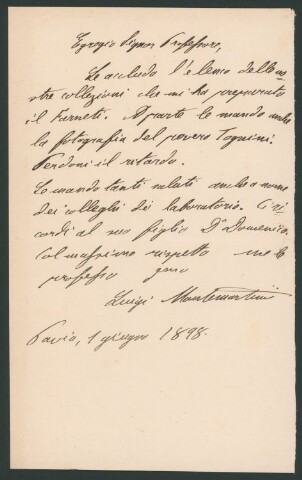 Egregio Signor Professore,
Le accludo l'elenco delle no
stre collezioni che mi ha preparato
il Turneti. A parte le mando anche
la fotografia del povero Tognini.
Perdoni il ritardo.
Le mando tanti saluti anche a nome
dei colleghi di laboratorio. Ci ri
cordi al suo figlio Dr Domenico.
Col massimo rispetto me le
professo
Luigi Montemartini
Pavia, 1 giugno 1898.